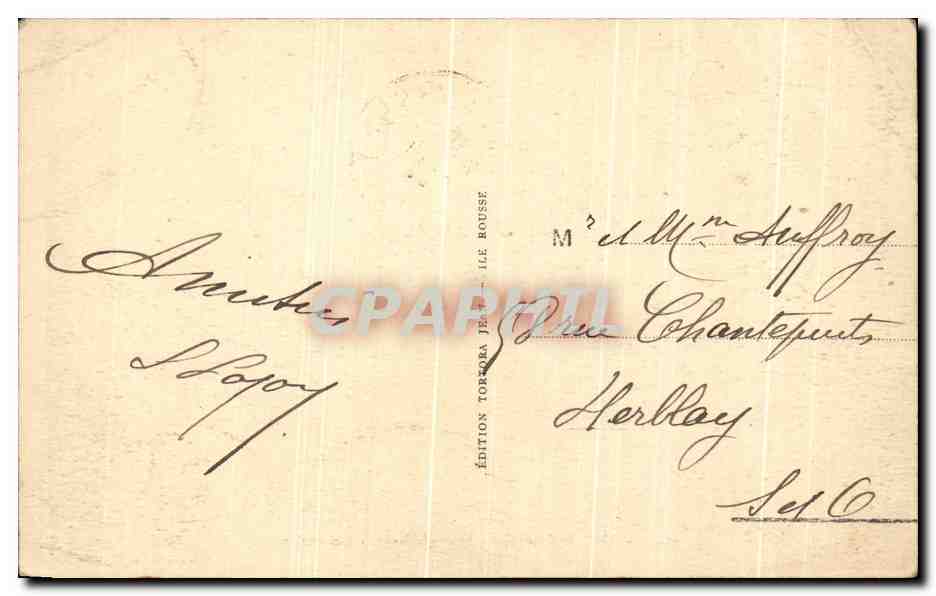 Amitiés
ÉDITION TORTORA JEAN — ILE ROUSSE
CPAPHIL
Mr et Mme Auffroy
rue Chantepuits
Herblay
S et O